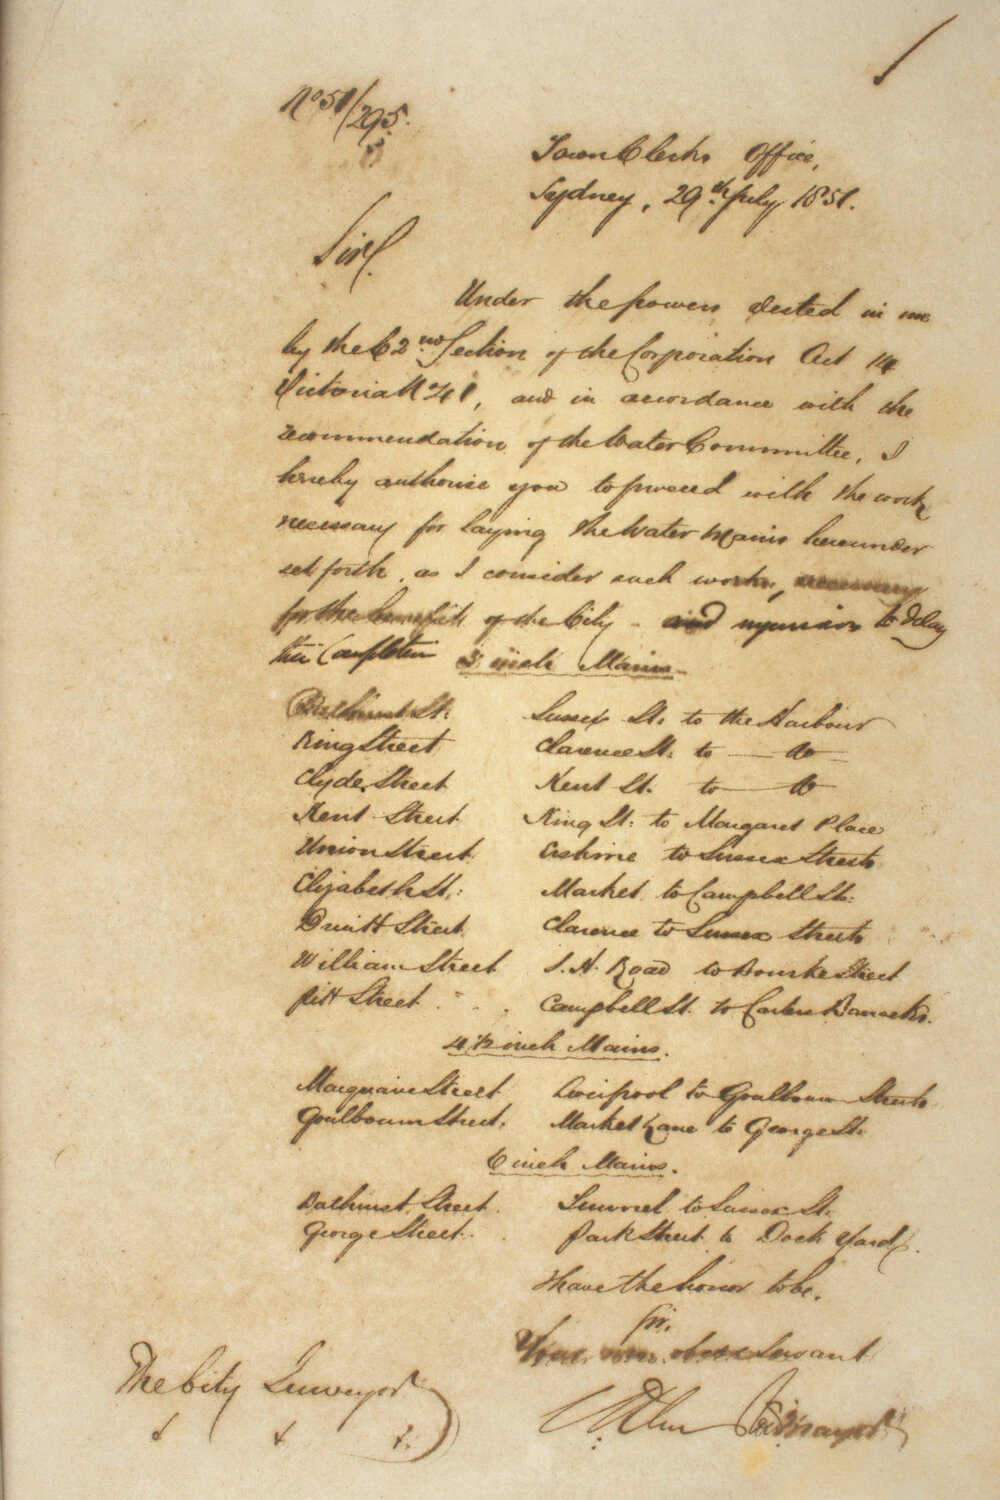 No 51/295.
Town Clerks Office,
Sydney, 29th July 1851.
Sir
Under the powers vested in me
by the 62nd Section of the Corporation Act 14
Victoria No 41, and in accordance with the
recommendation of the Water Committee, I
hereby authorise you to proceed with the work
necessary for laying the Water Mains hereunder
set forth, as I consider such works, necessary
for the benefit of the City - and to delay
the Completion 3 inch Mains.
Bathurst St: Sussex St: to the Harbour
King Street Clarence St: to — Do —
Clyde Street Kent St. to — Do
Kent Street King St: to Margaret Place
Union Street Erskine to Sussex Streets
Elizabeth St: Market to Campbell St:
Druitt Street Clarence to Sussex Streets
William Street S. H. Road to Bourke Street
Pitt Street Campbell St. to Carters Barracks.
4 1/2 inch Mains.
Macquarie Street Liverpool to Goulbourn Streets
Goulbourn Street. Market Lane to George St:
6 inch Mains.
Bathurst Street. Tunnel to Sussex St:
George Street. Park Street to Dock Yard.
I have the honor to be,
Sir,
Your obed Servant
Mayor
The City Surveyor
&c &c &c